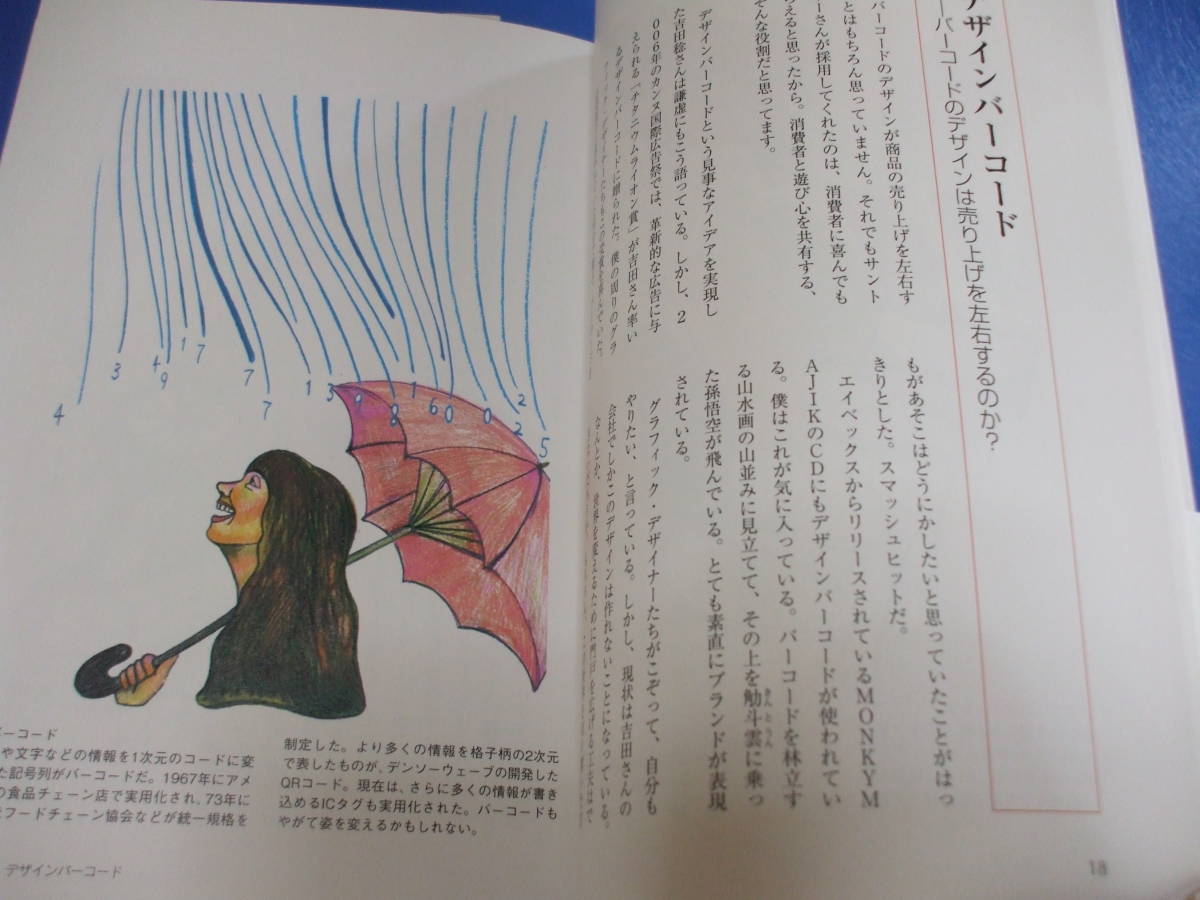 デザインバーコード
バーコードのデザインは売り上げを左右するのか?
バーコードのデザインが商品の売り上げを左右す
とはもちろん思っていません。それでもサント
ーさんが採用してくれたのは、消費者に喜んでも
らえると思ったから。消費者と遊び心を共有する、
そんな役割だと思ってます。
デザインバーコードという見事なアイデアを実現し
た吉田稔さんは謙虚にもこう語っている。しかし、2
006年のカンヌ国際広告祭では、革新的な広告に与
えられる「チタニウムライオン賞」が吉田さん率い
るデザインバーコードに贈られた。僕の周りのグラ
もがあそこはどうにかしたいと思っていたことがはっ
きりとした。スマッシュヒットだ。
エイベックスからリリースされているMONKYM
AJIKのCDにもデザインバーコードが使われてい
る。僕はこれが気に入っている。バーコードを林立す
る山水画の山並みに見立てて、その上を觔斗雲に乗っ
きんとうん
た孫悟空が飛んでいる。とても素直にブランドが表現
されている。
グラフィック・デザイナーたちがこぞって、自分も
やりたい、と言っている。しかし、現状は吉田さんの
会社でしかこのデザインは作れないことになっている。
なんとか、世界を変えるために門戸を広げる工夫はで
18
4 3 4 9 1 7 7 7 1 3 9 8 1 6 0 0 2 2 5
バーコード
や文字などの情報を1次元のコードに変
た記号列がバーコードだ。1967年にアメ
の食品チェーン店で実用化され、73年に
フードチェーン協会などが統一規格を
制定した。より多くの情報を格子柄の2次元
で表したものが、デンソーウェーブの開発した
QRコード。現在は、さらに多くの情報が書き
込めるICタグも実用化された。バーコードも
やがて姿を変えるかもしれない。
デザインバーコード